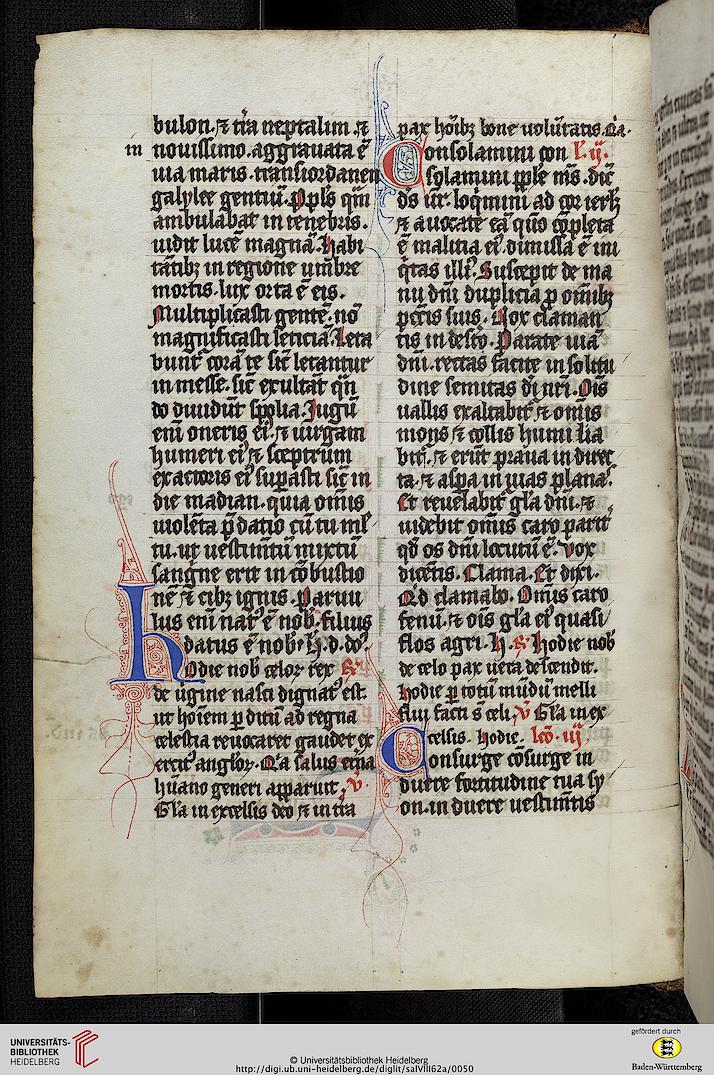 bulon. ⁊ tr̄a neptalim. ⁊
in nouissimo. aggrauata ē
uia maris. transiordanen
galylee gentiū. Ppl̓s qui
ambulabat in tenebris.
uidit lucē magnā. Habi
tātibꝫ in regione umbre
mortis. lux orta ē eis.
Multiplicasti gentē. nō
magnificasti leticiā. Leta
bunt᷒ corā te sic̄ letantur
in messe. sic̄ exultāt qn̄
do diuidūt spolia. Jugū
eni oneris ei᷒. ⁊ uirgam
humeri ei᷒ ⁊ sceptrum
exactoris ei᷒ supasti sic̄ in
die madian. quia omīs
uiolēta p̄datio cū tu ml̓
tu. ut uestimtū mixtū
sangne erit in cōbustio
nē ⁊ cibꝫ ignis. Paruu
lus eni nat᷒ ē nob̓. filius
datus ē nob̓.
Hodie nob̓ celoꝝ rex
de ugine nasci dignat᷒ est
ut hoīem p ditū ad regna
celestia reuocaret gaudet ex
ercit᷒ angloꝝ. Q̓a salus et̓na
hūano generi apparuit, V̓.
Gl̓a in excelsis deo ⁊ in tr̄a
pax hoībꝫ bone uolūtatis. Q̓a.
Consolamini con L̓. ij.
solamini pple ms̄. dic̄
ds̄ ur̄. loq̓mini ad cor ierl̓m
⁊ auocate eā quō cōpleta
ē malitia ei᷒. dimissa ē ini
q̓tas illi᷒. Suscepit de ma
nu dn̄i duplicia p omībꝫ
pctis suis. Vox claman
tis in desto. Parate uiā
dn̄i. rectas facite in solitu
dine semitas di nr̄i. Oīs
uallis exaltabit᷒. ⁊ omīs
mons ⁊ collis humi lia
bit᷒. ⁊ erūt praua in direc
ta. ⁊ aspa in uias planas.
Et reuelabit᷒ gl̓a dn̄i. ⁊
uidebit omīs caro parit̓
qd̓ os dn̄i locutū ē. Vox
dicētis. Clama. Et dixi.
Qd̓ clamabo. Omīs caro
fenū. ⁊ oīs gl̓a ei᷒ quasi
flos agri. Hodie nob̓
de celo pax uera descendit.
Hodie p totū mūdū melli
flui facti s̄ celi, V̓ Gl̓a in ex
celsis. Hodie. lc̄o. iij
Consurge cōsurge in
duere fortitudine tua sy
on. in duere uestimtis
UNIVERSITÄTS-
BIBLIOTHEK
HEIDELBERG
© Universitätsbibliothek Heidelberg
http://digi.ub.uni-heidelberg.de/diglit/salVIII62a/0050
gefördert durch
Baden-Württemberg